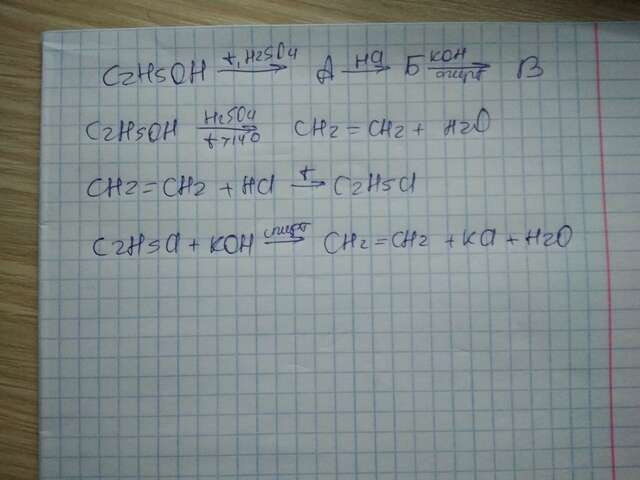 C2H5OH t, H2SO4 → А HCl → Б KOH спирт → В
C2H5OH H2SO4 t>140 → CH2=CH2 + H2O
CH2=CH2 + HCl t → C2H5Cl
C2H5Cl + KOH спирт → CH2=CH2 + KCl + H2O